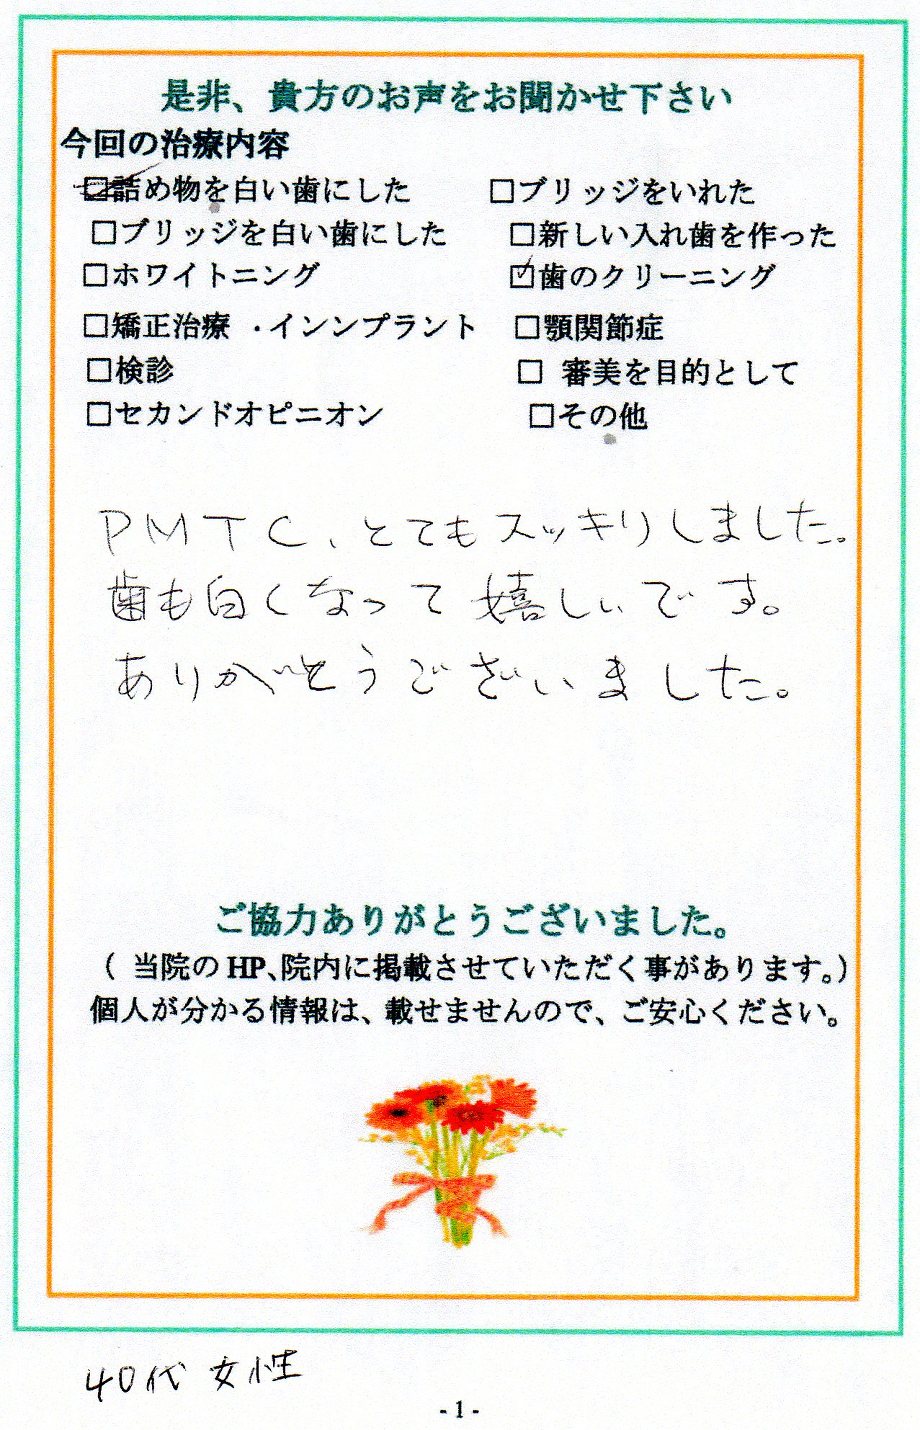 是非、貴方のお声をお聞かせ下さい
今回の治療内容
□詰め物を白い歯にした □ブリッジをいれた
□ブリッジを白い歯にした □新しい入れ歯を作った
□ホワイトニング ☑歯のクリーニング
□矯正治療 ・インンプラント □顎関節症
□検診 □ 審美を目的として
□セカンドオピニオン □その他
PMTC、とてもスッキリしました。
歯も白くなって嬉しいです。
ありがとうございました。
ご協力ありがとうございました。
( 当院のHP、院内に掲載させていただく事があります。)
個人が分かる情報は、載せませんので、ご安心ください。
40代 女性
- 1 -